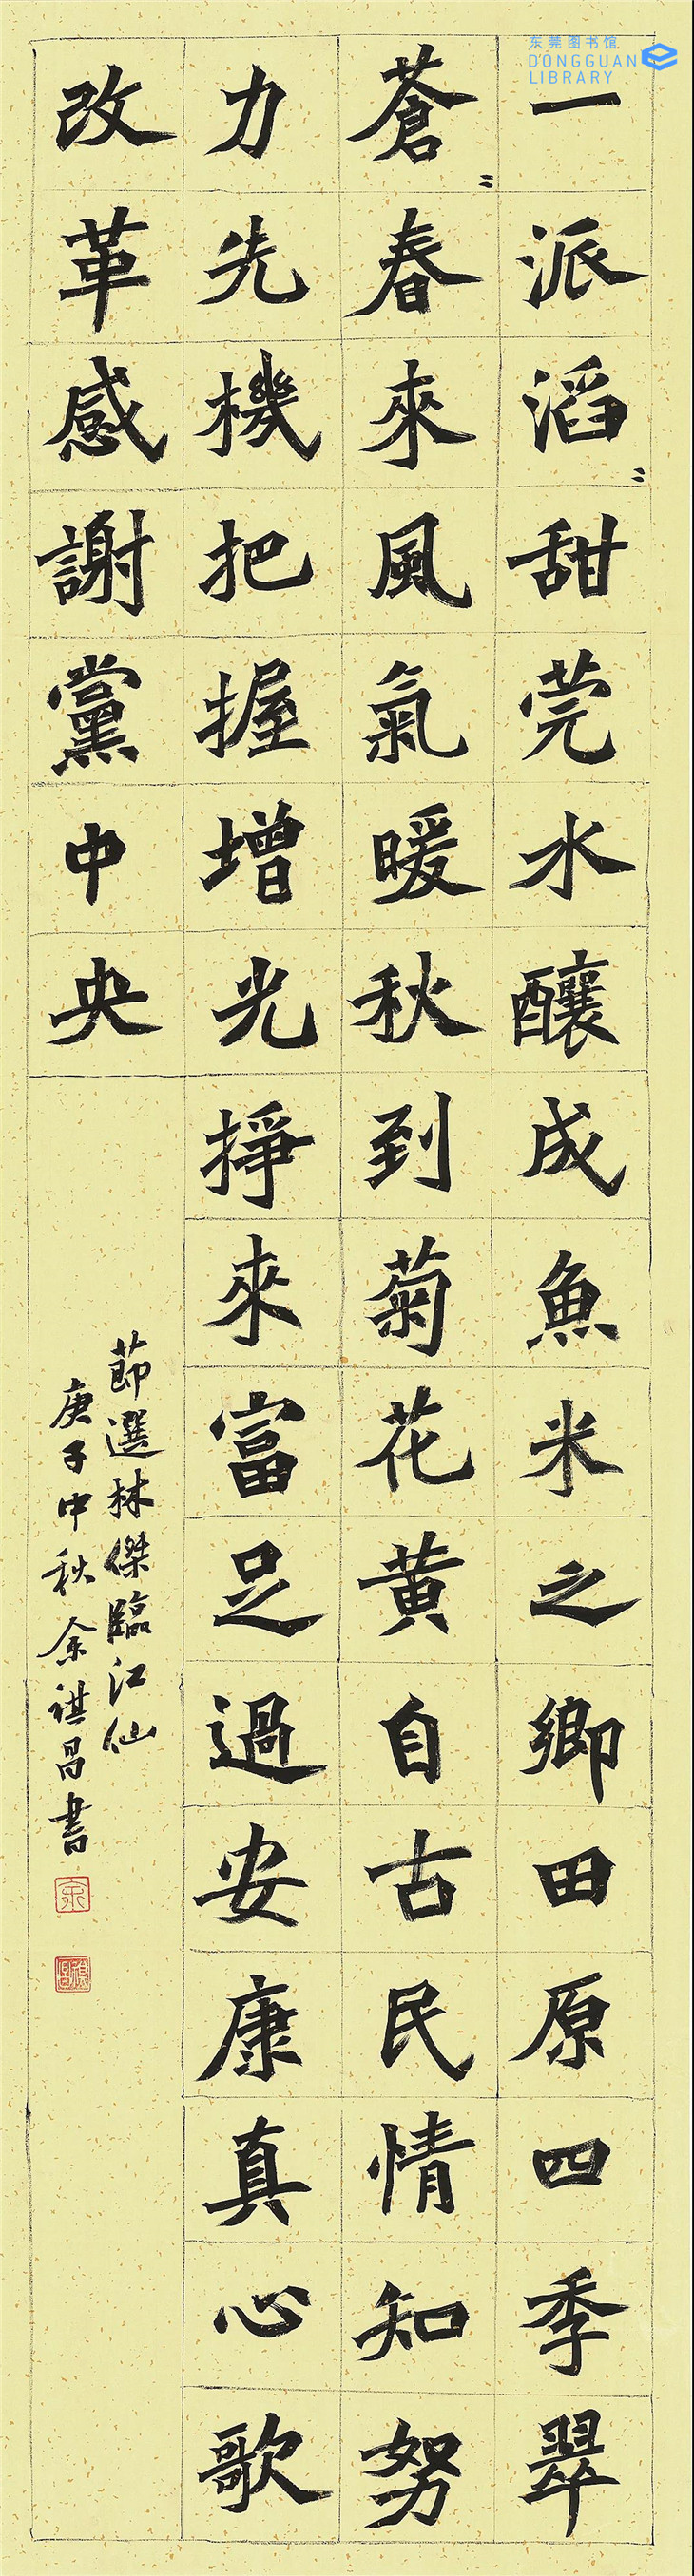 东莞图书馆
DONGGUAN
LIBRARY
一派滔〻甜莞水釀成魚米之鄉田原四季翠
蒼〻春來風氣暖秋到菊花黄自古民情知努
力先機把握增光掙來富足過安康真心歌
改革感謝黨中央
節選林傑臨江仙
庚子中秋余祺昌書
余
祺昌